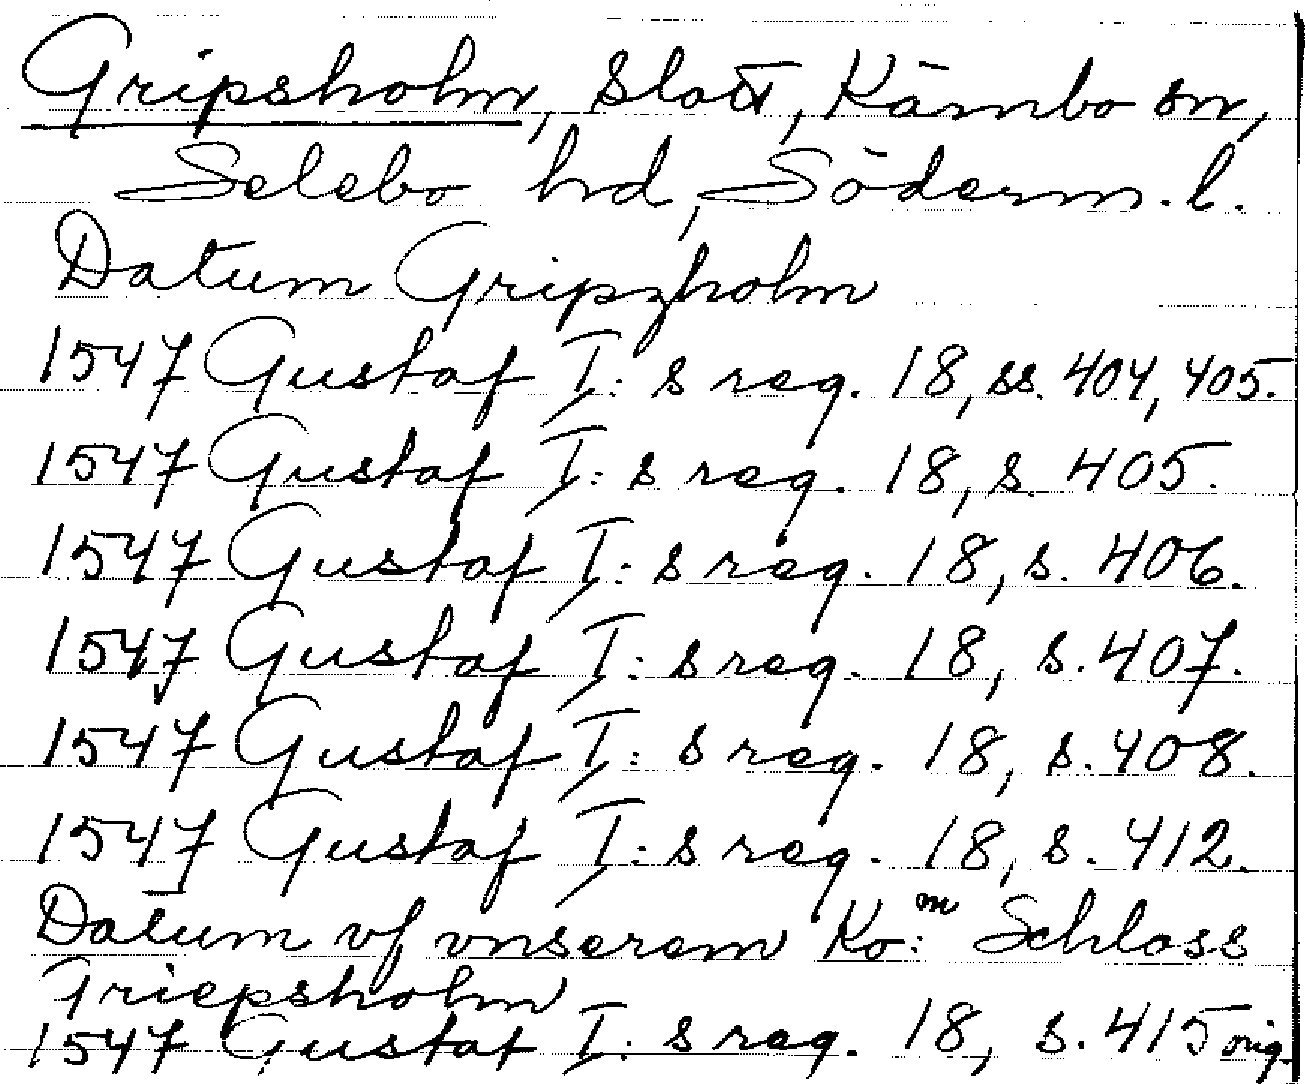 Gripsholm, slott, Kärnbo sn,
Selebo hd, Söderm. l.
Datum Gripzholm
1547 Gustaf I: s reg. 18, ss. 404, 405.
1547 Gustaf I: s reg. 18, s. 405.
1547 Gustaf I: s reg. 18, s. 406.
1547 Gustaf I: s reg. 18, s. 407.
1547 Gustaf I: s reg. 18, s. 408.
1547 Gustaf I: s reg. 18, s. 412.
Datum vf vnserem Ko:m Schloss
Griepsholm
1547 Gustaf I: s reg. 18, s. 415 orig.